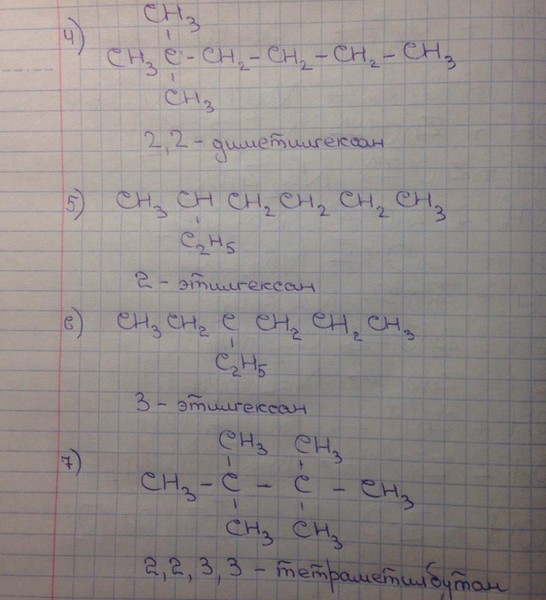 CH₃
4) CH₃ C - CH₂ - CH₂ - CH₂ - CH₃
CH₃
2,2 - диметилгексан
5) CH₃ CH CH₂ CH₂ CH₂ CH₃
C₂H₅
2 - этилгексан
6) CH₃ CH₂ C CH₂ CH₂ CH₃
C₂H₅
3 - этилгексан
CH₃ CH₃
7) CH₃ - C - C - CH₃
CH₃ CH₃
2,2,3,3 - тетраметилбутан